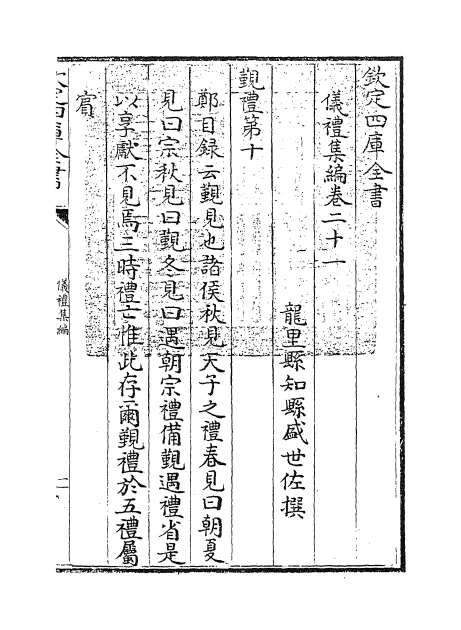 欽定四庫全書
儀禮集編卷二十一
龍里縣知縣盛世佐撰
覲禮第十
鄭目録云覲見也諸侯秋見天子之禮春見曰朝夏
見曰宗秋見曰覲冬見曰遇朝宗禮備覲遇禮省是
以享獻不見焉三時禮亡惟此存爾覲禮於五禮屬
賓
儀禮集編